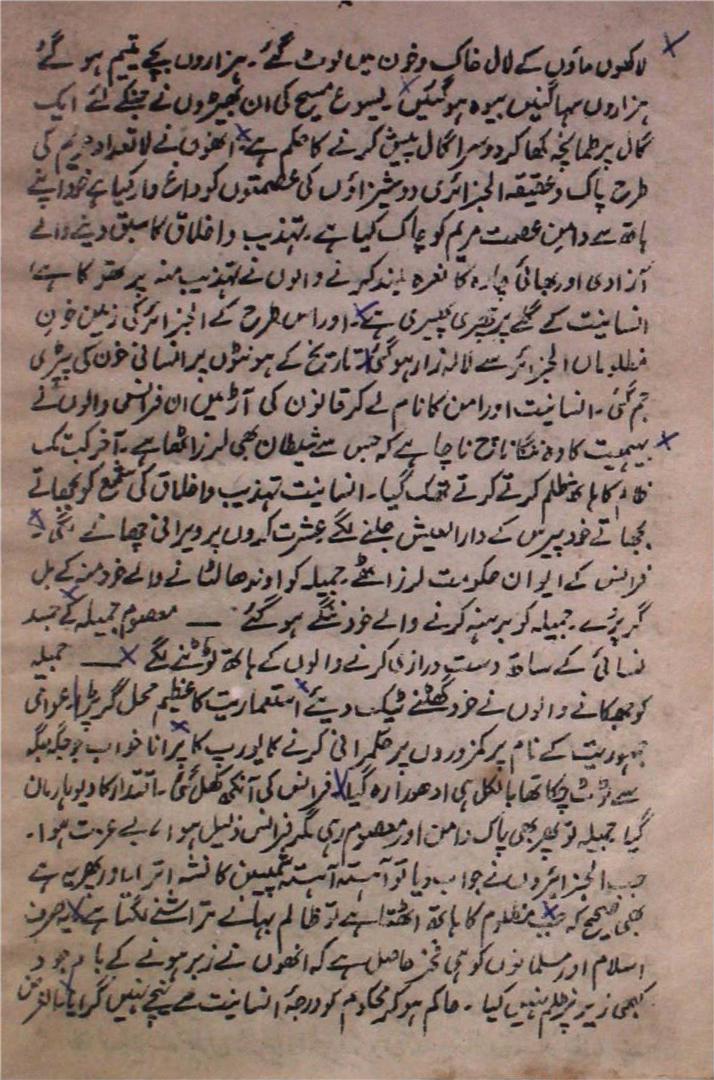 لاکھوں ماؤں کے لال خاک و خون میں لوٹ گئے ۔ ہزاروں بچے یتیم ہو گئے
ہزاروں سہاگنیں بیوہ ہوگئیں ۔ یسوع مسیح کی ان بھیڑوں نے جنکے لئے ایک
گال پر طمانچہ کھا کر دوسرا گال پیش کرنے کا حکم ہے ۔ انھوں نے لا تعداد مریم کی
طرح پاک و عفیفہ الجزائری دوشیزاؤں کی عصمتوں کو داغدار کیا ہے خود اپنے
ہاتھ سے دامنِ عصمت مریم کو چاک کیا ہے ۔ تہذیب و اخلاق کا سبق دینے والے
آزادی اور بھائی چارہ کا نعرہ بلند کرنے والوں نے تہذیب منہ پر تھوکا ہے
انسانیت کے گلے پر چھری پھیری ہے ۔ اور اس طرح کے الجزائر کی زمین خونِ
مظلوماں الجزائر سے لالہ زار ہوگئی تاریخ کے ہونٹوں پر انسانی خون کی پپڑی
جم گئی ۔ انسانیت اور امن کا نام لے کر قانون کی آڑ میں ان فرانس والوں نے
بہیمیت کا وہ ننگا ناچ ناچا ہے کہ جس سے شیطان بھی لرز اٹھا ہے ۔ آخر کب تک
ظلم کا ہاتھ ظلم کرتے کرتے تھک گیا ۔ انسانیت تہذیب و اخلاق کی شمع کو بجھاتے
بجھاتے خود پیرس کے دار العیش جلنے لگے عشرت کدوں پر ویرانی چھانے لگی
فرانس کے ایوان حکومت لرز اٹھے ۔ جمیلہ کو اوندھا لٹانے والے خود منہ کے بل
گر پڑے ۔ جمیلہ کو برہنہ کرنے والے خود ننگے ہو گئے ۔ — معصوم جمیلہ کے جسد
نسائی کے ساتھ دست درازی کرنے والوں کے ہاتھ ٹوٹنے لگے — جمیلہ
کو جھکانے والوں نے خود گھٹنے ٹیک دیئے استعماریت کا عظیم محل گر پڑا ۔ عوامی
جمہوریت کے نام پر کمزوروں پر حکمرانی کرنے کا یورپ کا پرانا خواب جو جگہ جگہ
سے ٹوٹ چکا تھا بالکل ہی ادھورا رہ گیا فرانس کی آنکھ کھل گئی ۔ اقتدار کا دیو ہار مان
گیا جمیلہ تو پھر بھی پاک دامن اور معصوم رہی مگر فرانس ذلیل ہوا ، بے عزت ہوا ۔
جب الجزائروں نے جواب دیا تو آہستہ آہستہ شمپین کا نشہ اترا اور پھر یہ ہے
بھی صحیح کہ جب مظلوم کا ہاتھ اٹھتا ہے تو ظالم بہانے تراشنے لگتا ہے یہ صرف
اسلام اور مسلمانوں کو ہی فخر حاصل ہے کہ انھوں نے زبر ہونے کے باوجود
کبھی زیر پر ظلم نہیں کیا ۔ حاکم ہو کر محکوم کو درجۂ انسانیت سے نیچے نہیں گرایا الغرض